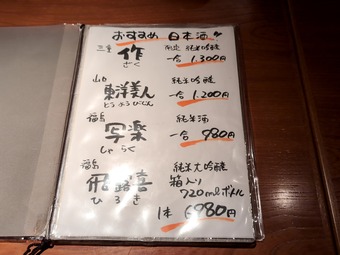 おすすめ 日本酒!!
三重 限定 純米吟醸
作 一合 1,300円
ざく
山口 純米吟醸
東洋美人 一合 1,200円
とうようびじん
福島 純米酒
写楽 一合 980円
しゃらく
福島 純米大吟醸
飛露喜 箱入り
ひろき 720mlボトル
1本 6980円